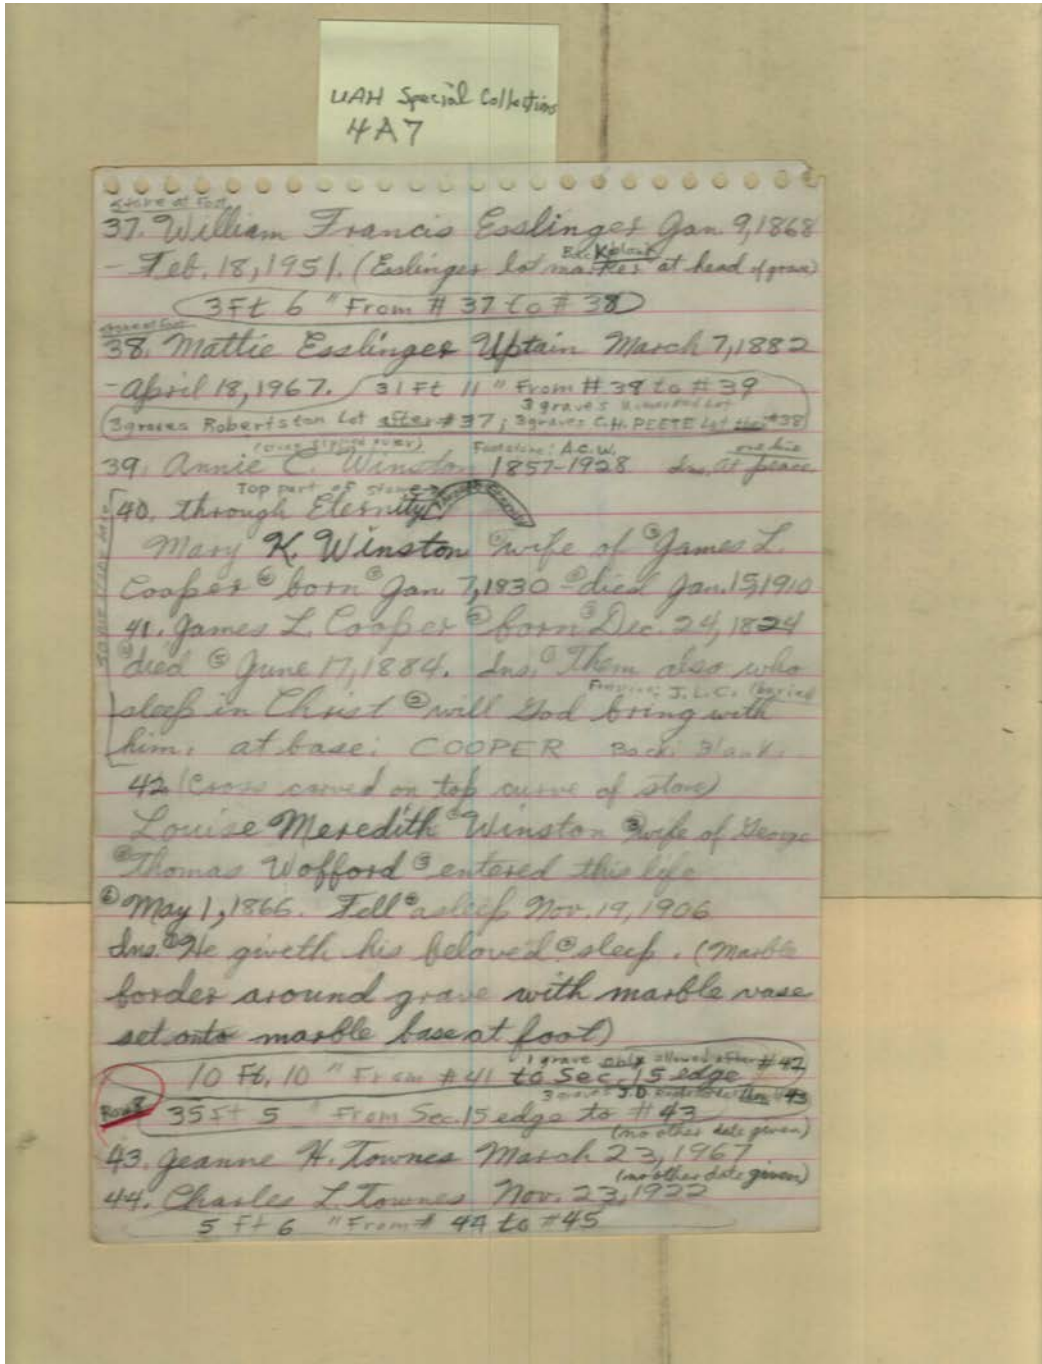 UAH Special Collections
4A7
stone at foot
37. William Francis Esslinger Jan. 9, 1868
Back blank
- Feb. 18, 1951. (Esslinger lot marker at head of grave)
3 Ft 6 " From # 37 to # 38
stone at foot
38. Mattie Esslinger Uptain March 7, 1882
- April 18, 1967. 31 Ft 11 " From # 38 to # 39
3 graves Lot
3 graves Robertston Lot after # 37; 3 graves C.H. PEETE Lot #38
Footstone: A.C.W. one line
39. Annie C. Winston 1857-1928 Ins. at peace
Top part of stone
40. through Eternity through Eternity
Mary K. Winston ② wife of ③ James L.
Cooper ④ born ⑤ Jan. 7, 1830 - ⑥ died Jan. 15, 1910
41. James L. Cooper ② born ③ Dec. 24, 1824
④ died ⑤ June 17, 1884. Ins. ① Them also who
J.L.C. (buried
sleep in Christ ② will God bring with
him. at base: COOPER Back: Blank.
42. (Cross carved on top curve of stone)
Louise Meredith ② Winston ③ wife of George
④ Thomas Wofford ⑤ entered this life
⑥ May 1, 1866. Fell ⑦ asleep Nov. 19, 1906
Ins. ① He giveth his beloved ② sleep. (Marble
border around grave with marble vase
set onto marble base at foot)
1 grave only allowed after # 42
10 Ft. 10 " From # 41 to Sec. 15 edge
3 graves J.D. #43
Row 8 35 Ft 5 " From Sec. 15 edge to # 43
(no other date given)
43. Jeanne H. Townes March 23, 1967
(no other date given)
44. Charles L. Townes Nov. 23, 1922
5 Ft 6 " From # 44 to #45